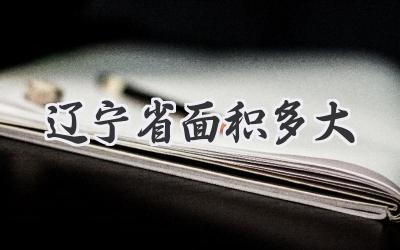 辽宁省面积多大